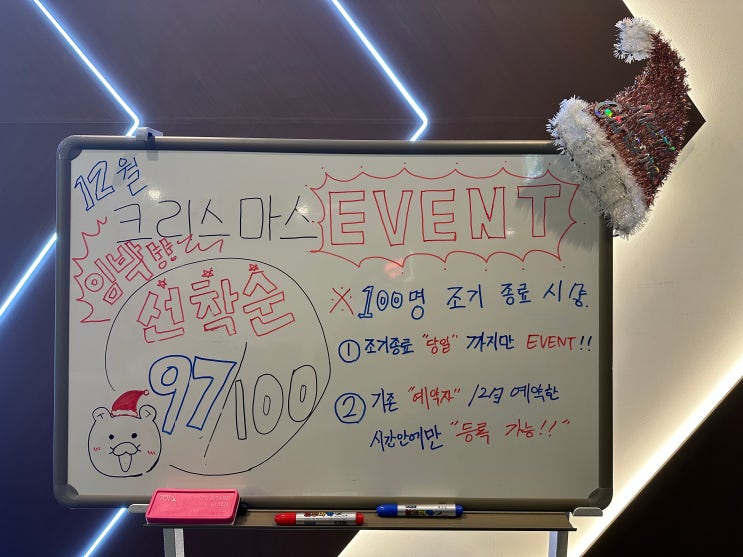 12월
크리스마스 EVENT
임박
선착순
97/100
※ 100명 조기 종료 시
① 조기종료 "당일" 까지만 EVENT!!
② 기존 "예약자" 12월 예약한
시간안에만 "등록 가능!!"